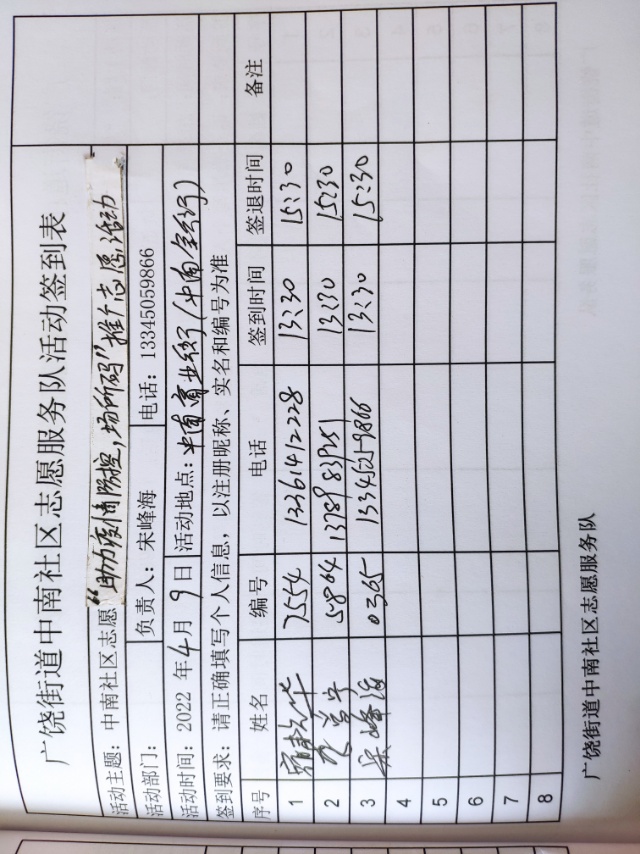 广饶街道中南社区志愿服务队活动签到表
活动主题：中南社区志愿“助力疫情防控，场所码”推广志愿活动
活动部门： 负责人：宋峰海 电话：13345059866
活动时间：2022 年 4 月 9 日 活动地点：中南商业街（中南金街）
签到要求：请正确填写个人信息，以注册昵称、实名和编号为准
序号 姓名 编号 电话 签到时间 签退时间 备注
1 7554 13361412228 13:30 15:30
2 5864 13:30 15:30
3 宋峰海 0365 13345059866 13:30 15:30
4
5
6
7
8
广饶街道中南社区志愿服务队